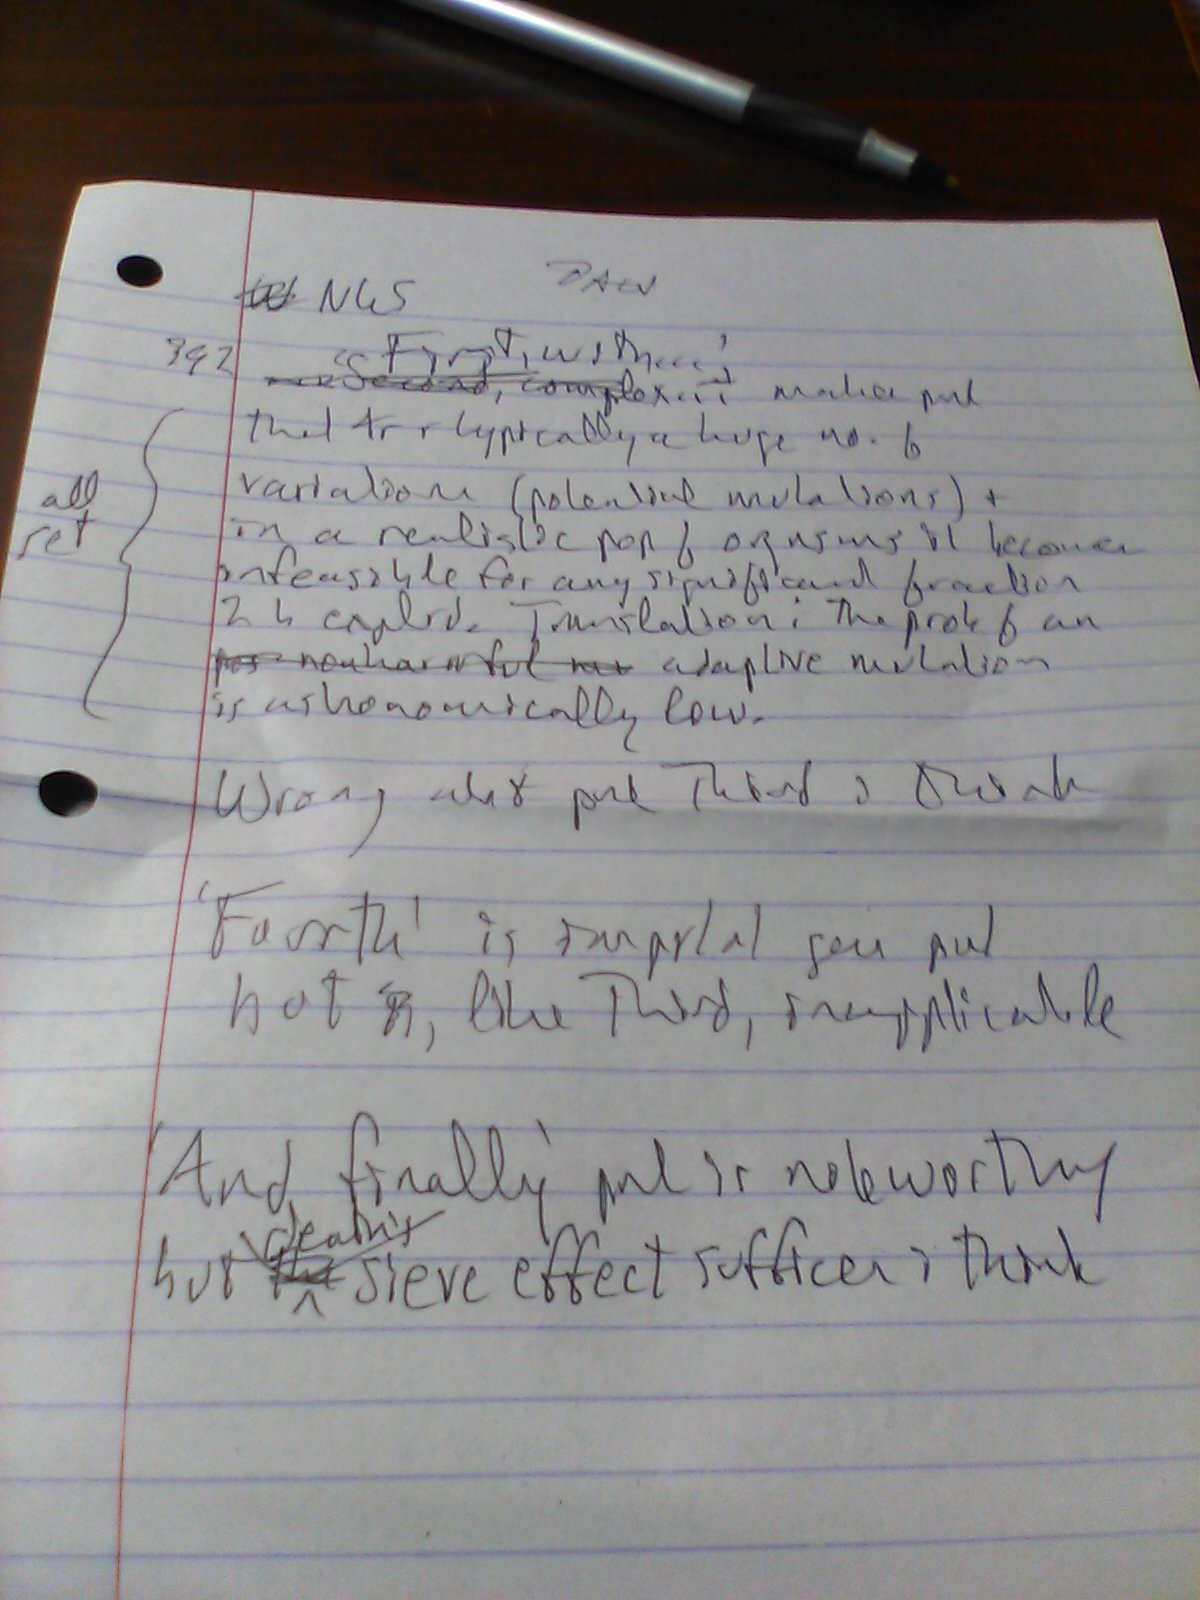 NGS
392
"First, with...'
makes pnt
that tr r typically a huge no. of
variations (potential mutations) +
in a realistic pop of orgnsms it becomes
infeasible for any significant fraction
2 b explrd. Translation: The prob of an
adaptive mutation
is astronomically low.
all
set
Wrong abt pnt Third I think
'Fourth' is imprtnt gen pnt
but, like Third, inapplicable
'And finally' pnt is noteworthy
but sieve effect suffices I think